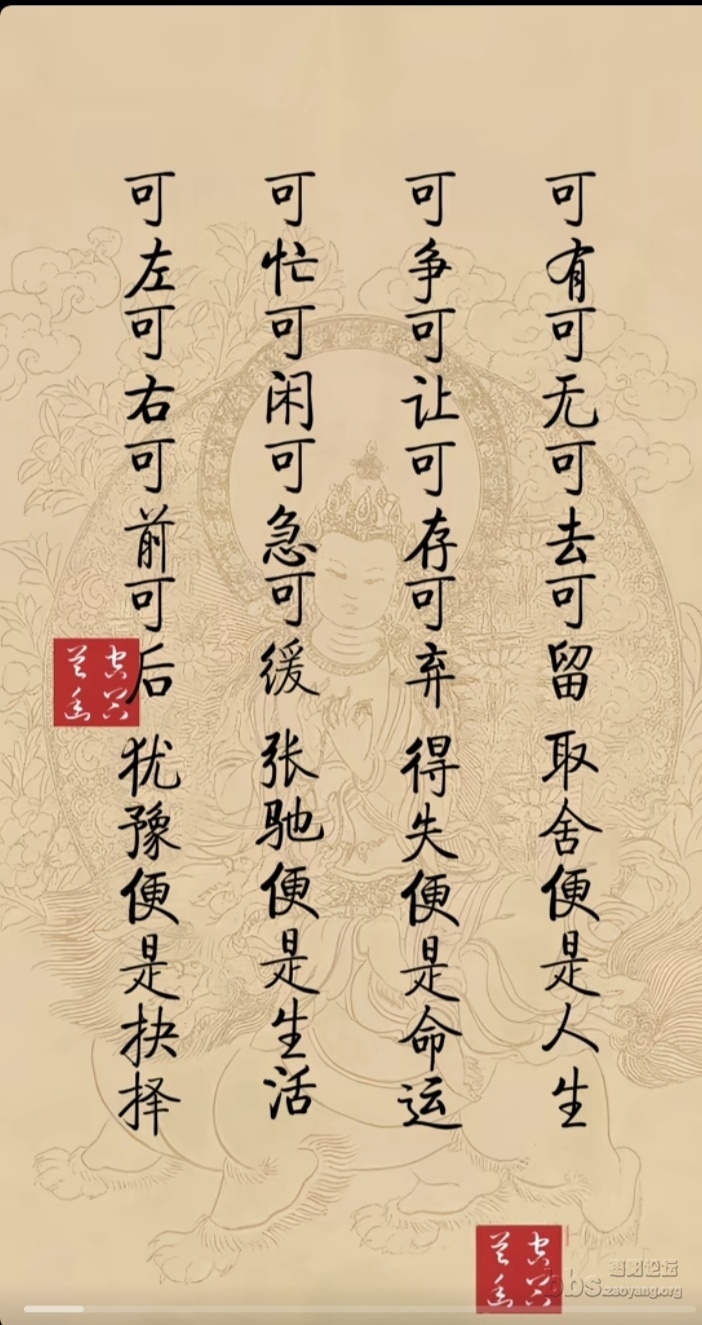 可有可无可去可留 取舍便是人生
可争可让可存可弃 得失便是命运
可忙可闲可急可缓 张驰便是生活
可左可右可前可后 犹豫便是抉择
bbs.zaoyang.org